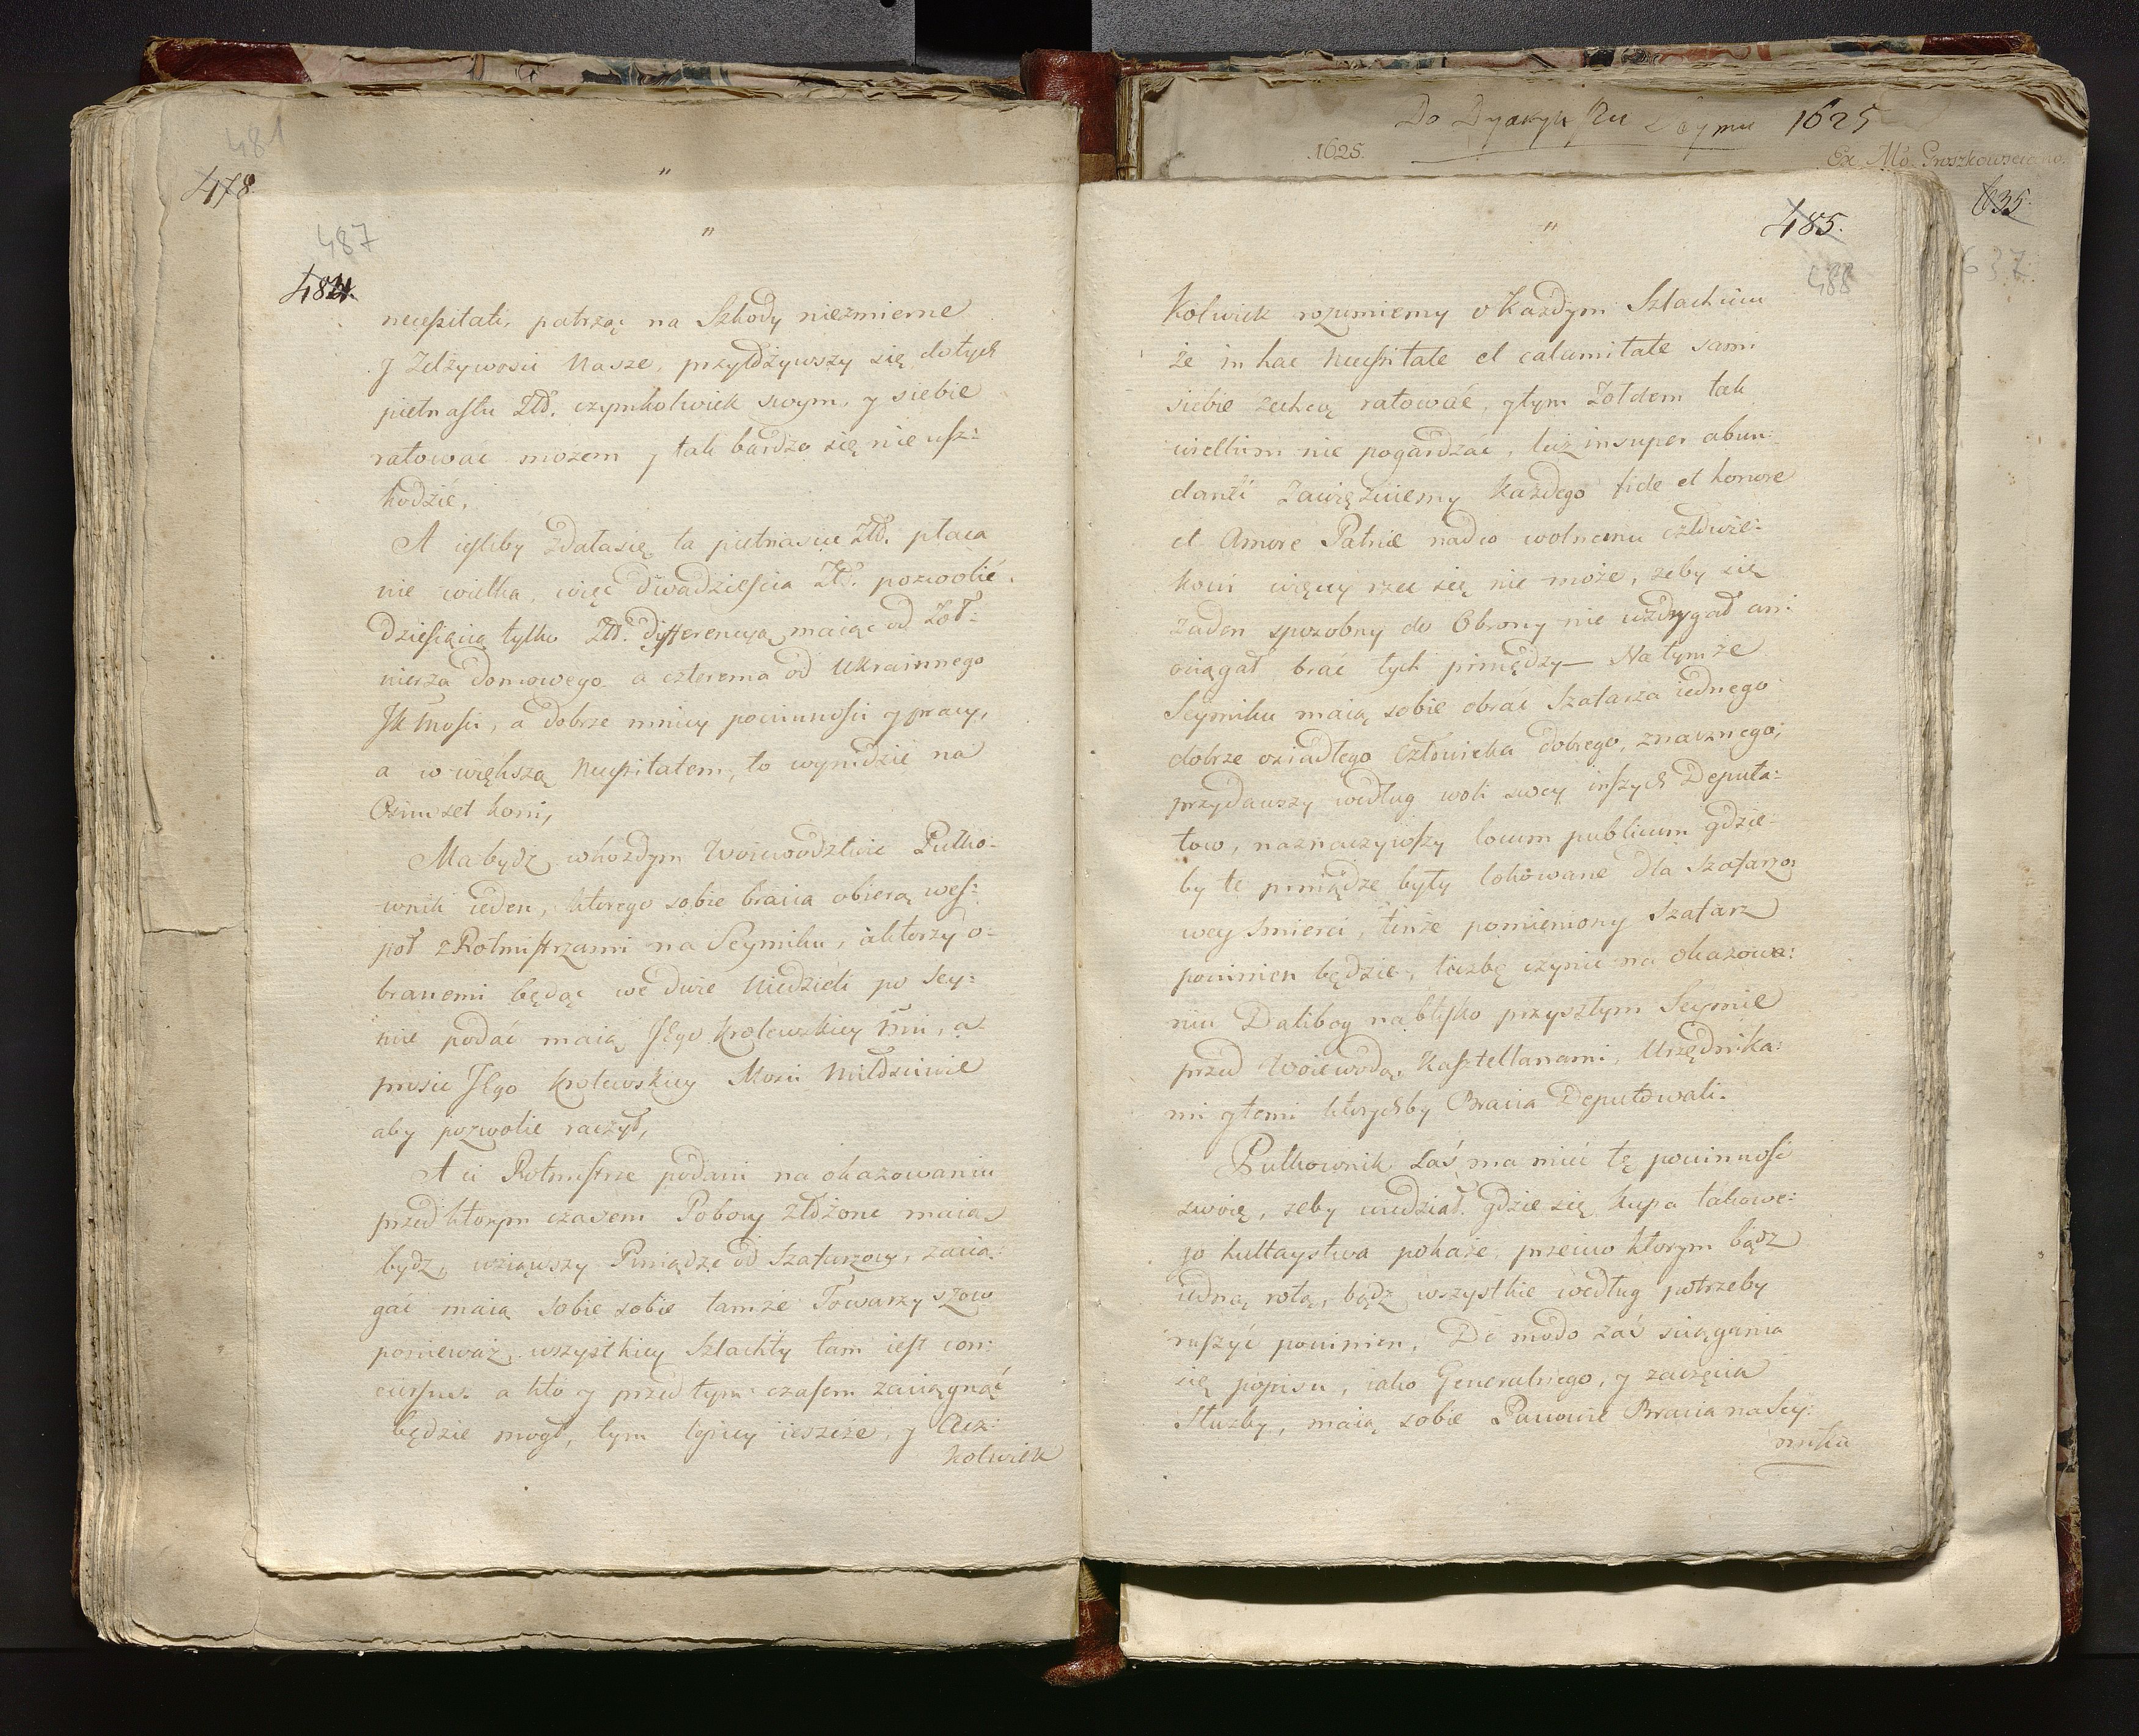 481
478.
"
487
"
484.
necessitati, patrząc na Szkody niezmierne
y Zelżywosci Nasze, przyłożywszy się do tych
pietnastu Złł. czymkolwiek swym, y siebie
ratować możem y tak bardzo się nie usz:
kodzić,
A iesliby zdała się ta pietnascie Złł. płaca
nie wielka, więc dwadziescia Złł. pozwolić.
dziesiącią tylko Złł. differencyą maiąc od Żoł:
nierza domowego a czterema od Ukrainnego
JK Mosci, a dobrze mniey powinnosci y pracy,
a w większą necessitatem, to wynidzie na
Osmset koni,
Ma bydź w kożdym Woiewodztwie Pułko-
wnik ieden, ktorego sobie bracia obierą wes:
poł z Rotmistrzami na Seymiku, a ktorzy o-
branemi będąc we dwie Niedzieli po Sey:
mie podać maią JEgo Krolewskiey Mci, a
prosic JEgo Krolewskiey Mosci Miłosciwie
aby pozwolic raczył,
A ci Rotmistrze podani na okazowaniu
przed ktorym czasem Pobory złożone maią
bydź, wziąwszy Pieniądze od Szafarzow, zacią:
gać maią sobie sobie tamże Towarzyszow
ponieważ wszystkiey Szlachty tam iest con:
cursus. a kto y przed tym czasem zaciągnąć
będzie mogł, tym lepiey ieszcze, y Acz:
kolwiek
Do Dyaryuszu Seymu 1625
1625.
Ex Mo. Groszkowsciano.
635.
637.
"
485.
488
kolwiek rozumiemy o Każdym Szlachcicu
że in hac necessitate et calamitate sami
siebie zechcą ratować, y tym Żołdem tak
wielkim nie pogardzać, lecz insuper abun:
danti Zawięzuiemy każdego fide et honore
et Amore Patrie nad co wolnemu człowie-
kowi więcey rzec się nie może, zeby się
żaden sposobny do Obrony nie wzdrygał ani
ociągał brać tych pieniędzy — Na tymże
Seymiku maią sobie obrać Szafarza iednego
dobrze osiadłego Człowieka dobrego, znacznego,
przydawszy według woli swey inszych Deputa:
tow, naznaczywszy locum publicum gdzie-
by te pieniądze były lokowane dla Szafarzo,
wey Smierci, tenże pomieniony Szafarz
powinien będzie, liczbę czynic na okazowa:
niu Dalibog na blisko przyszłym Seymie
przed Woiewodą, Kasztellanami, Urzędnika:
mi y temi ktorychby Bracia Deputowali.
Pułkownik zaś ma mieć tę powinnosc
swoię, zeby wiedział gdzie się kupa takowe:
go hultaystwa pokaże przeciwko ktorym bądz
iedną rotą, bądź wszystkie według potrzeby
ruszyć powinien, De modo zaś sciągania
się popisu, iako Generalnego, y zaczęcia
Służby, maią sobie Panowie Bracia na Sey:
miku